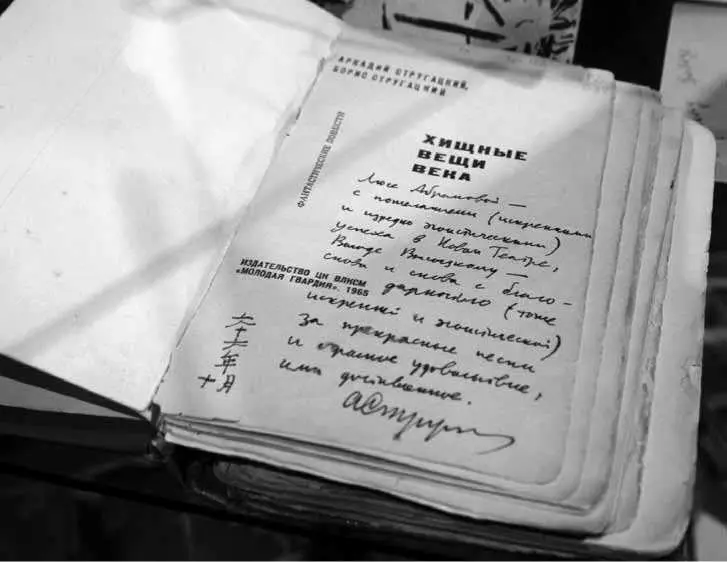 АРКАДИЙ СТРУГАЦКИЙ,
БОРИС СТРУГАЦКИЙ
ФАНТАСТИЧЕСКИЕ ПОВЕСТИ
ХИЩНЫЕ
ВЕЩИ
ВЕКА
Люсе Абрамовой —
с пожеланиями (искренними
и эгоистическими)
успеха в Новом Театре,
Володе Высоцкому —
снова и снова с благо-
дарностью (тоже
искренней и эгоистической)
за прекрасные песни
и огромное удовольствие,
ими доставленное.
ИЗДАТЕЛЬСТВО ЦК ВЛКСМ
«МОЛОДАЯ ГВАРДИЯ». 1965
六十六年
十月